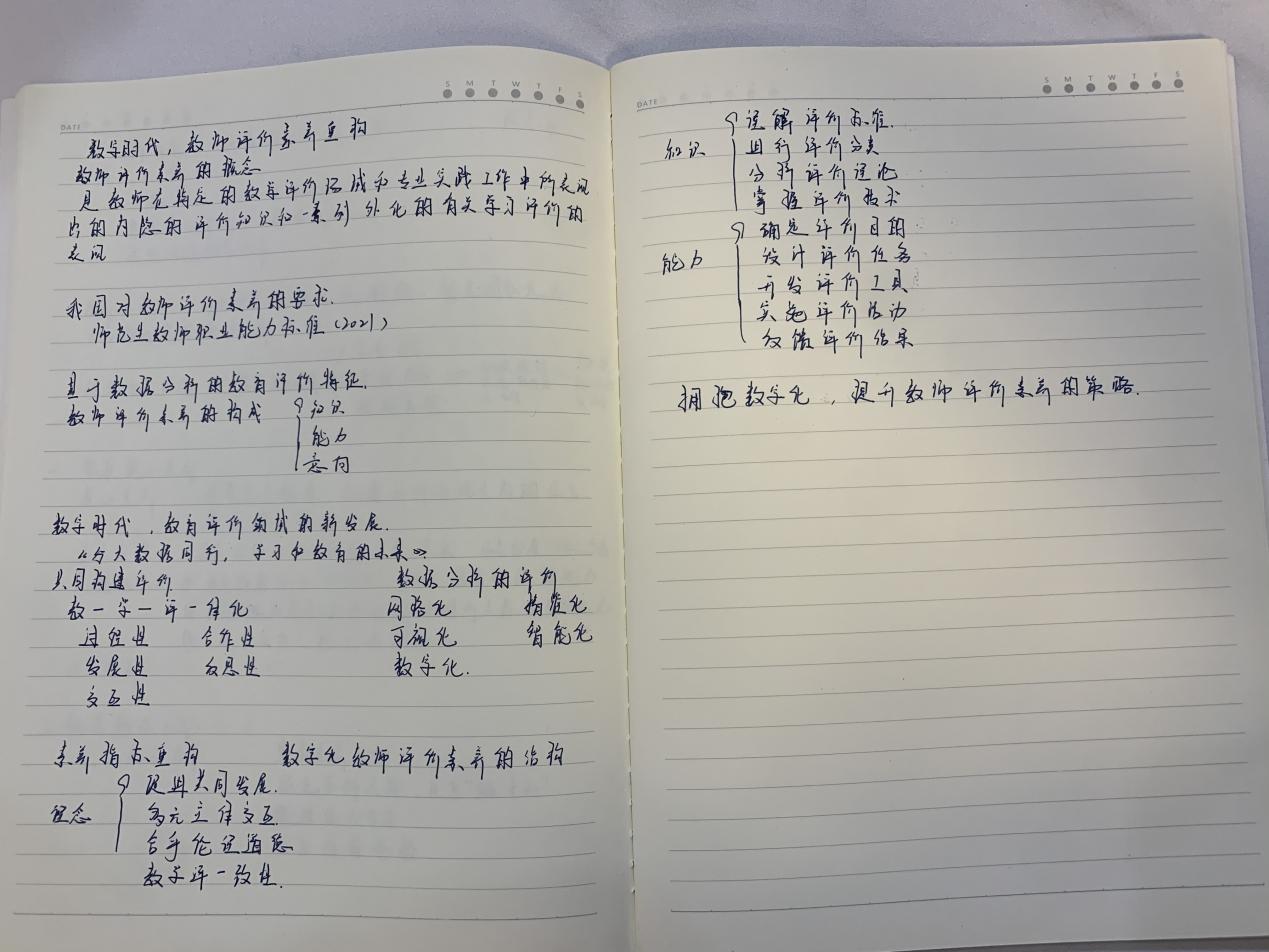 S M T W T F S
DATE
数字时代，教师评价素养重构
教师评价素养的概念
是教师在特定的教育评价区域和专业实践工作中所表现
出的内隐的评价知识和一系列外化的有关学习评价的
表现
我国对教师评价素养的要求.
师范生教师职业能力标准（2021）
基于数据分析的教育评价特征.
教师评价素养的构成 知识
能力
意向
数字时代，教育评价领域的新发展.
《与大数据同行，学习和教育的未来》
共同构建评价 数据分析的评价
教一学一评一体化 网络化 精准化
过程性 合作性 可视化 智能化
发展性 反思性 数字化.
交互性
素养指标重构 数字化教师评价素养的结构
促进共同发展.
理念 多元主体交互
合乎伦理道德
教学评一致性.
S M T W T F S
DATE
理解评价标准.
知识 进行评价分类
分析评价理论
掌握评价技术
确定评价目的
能力 设计评价任务
开发评价工具
实施评价活动
反馈评价结果
拥抱数字化，提升教师评价素养的策略.